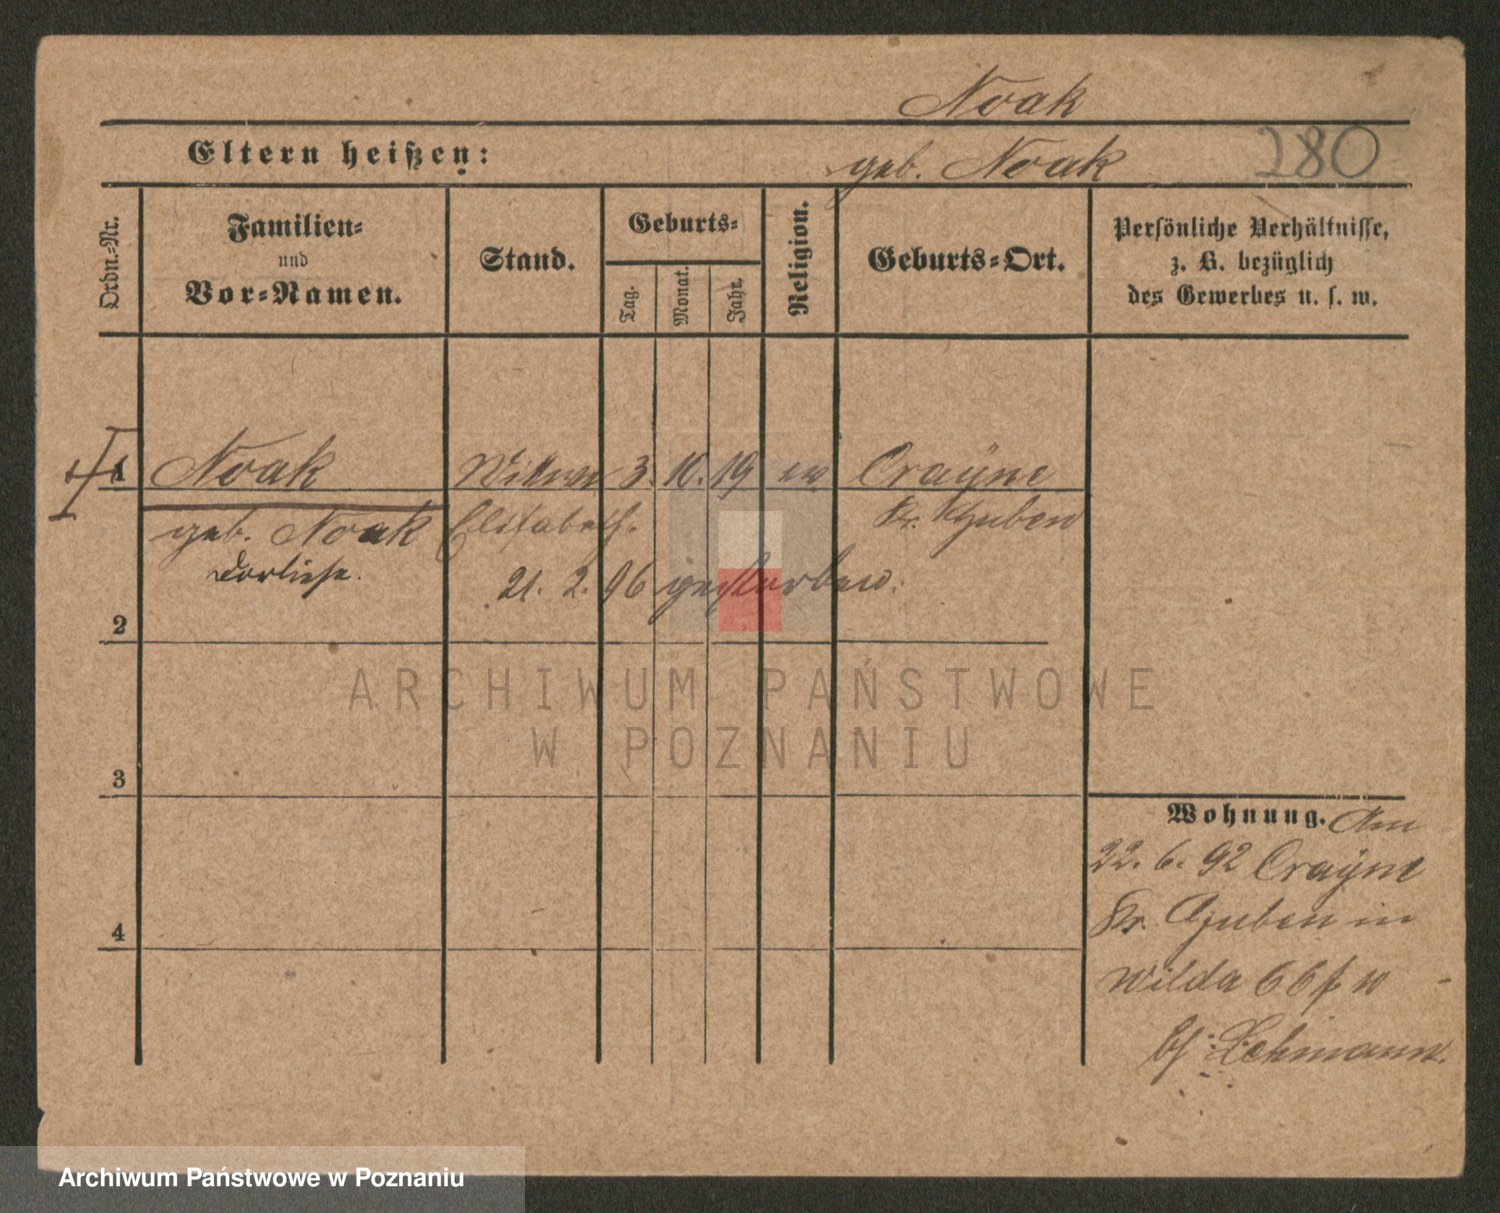 Noak
Eltern heißen:
geb. Noak
280
Ordn.-Nr.
Familien-
und
Vor-Namen.
Stand.
Geburts-
Tag.
Monat.
Jahr.
Religion.
Geburts-Ort.
Persönliche Verhältnisse,
z. B. bezüglich
des Gewerbes u. s. w.
1
Noak
Witwe
3. 10. 19
ev
Crayne
geb. Noak
Elisabeth.
Kr. Guben
Dorliese.
21. 2. 96 gestorben.
2
ARCHIWUM PAŃSTWOWE
W POZNANIU
3
Wohnung. Am
22. 6. 92 Crayne
Kr. Guben in
Wilda 66
b/ Lehmann.
4
Archiwum Państwowe w Poznaniu